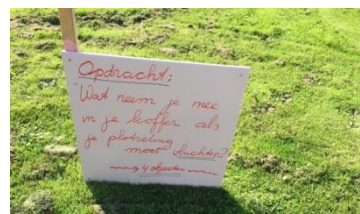 Opdracht:
"Wat neem je mee
in je koffer als
je plotseling
moet vluchten?
4 objecten